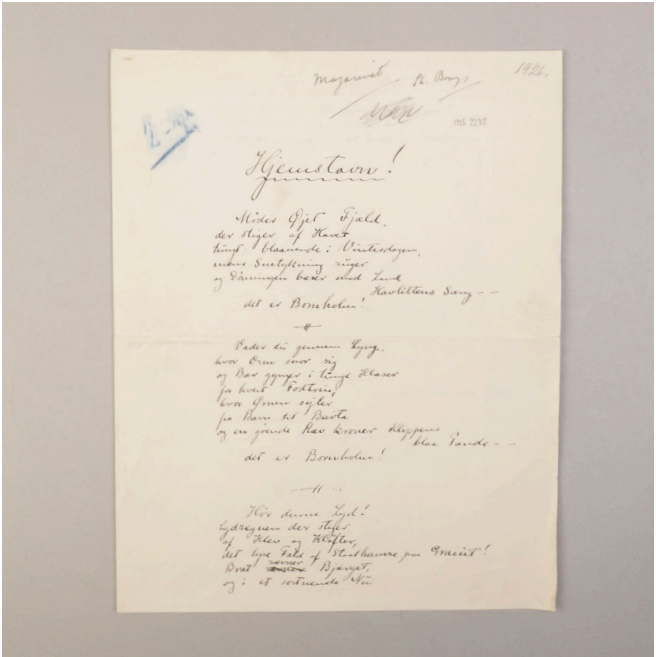 Magasinet
1926.
MS 2235
Hjemstavn!
Møder Øjet Fjæld,
der stiger af Havet
tungt blaanende i Vinterdagen,
mens Snetykning ruger
og Dønningen bærer mod Land
Havlittens Sang --
det er Bornholm!
Vader du gennem Lyng.
hvor Orm snor sig
og Bær gynger i tunge Klaser
for hvert Fodtrin,
hvor Ørnen sejler
fra Barn til Bavta
og en gøende Ræv kroner Klippens
blaa Pande --
det er Bornholm!
Hør denne Lyd!
Lydregnen der stiger
af Kløv og Kløfter,
det lyse Fald af Staalhamre paa Granit!
Brat revner Bjærget,
og i et sortnende Nu